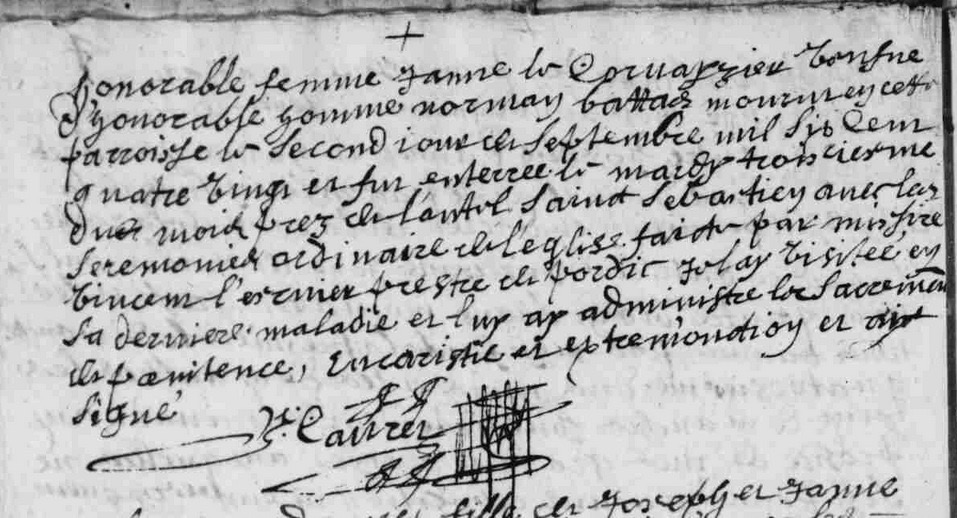 honorable femme Janne le Corvaysier Veufve
d'honorable homme norman battas mourut en cette
parroisse le second iour de septembre mil six cent
quatre vingt et fut enterree le mardy troisiesme
dudit mois prez de l'autel Saint Sebastien avec les
seremonies ordinaire de l'eglise faicte par missire
Vincent l'esnier prestre de pordic Je lay Visitee en
sa derniere maladie et luy ay administre les sacrements
de pœnitence, Eucaristie et extremonction et ay
signé
Y. Cauret
fille de Joseph et Janne